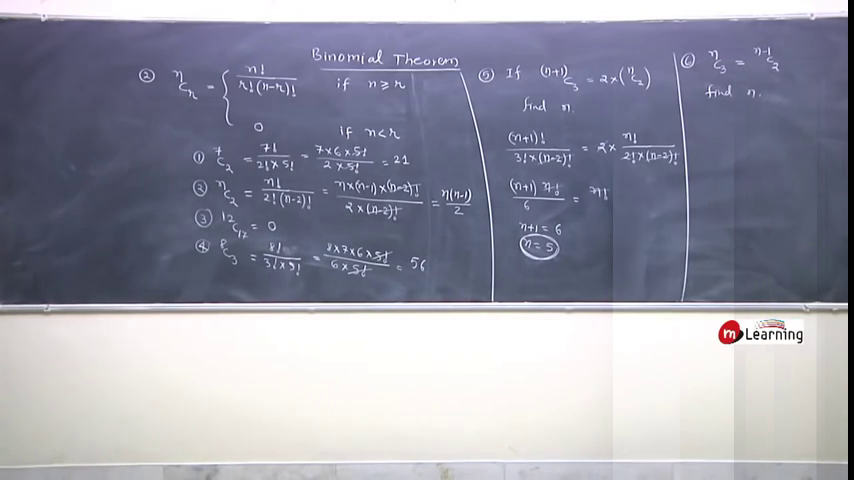 Binomial Theorem
② ⁿCᵣ = { n! / r!(n-r)! if n ≥ r
0 if n < r
① ⁷C₂ = 7! / 2! × 5! = 7×6×5! / 2×5! = 21
② ⁿC₂ = n! / 2!(n-2)! = n×(n-1)×(n-2)! / 2×(n-2)! = n(n-1) / 2
③ ¹²C₁₇ = 0
④ ⁸C₃ = 8! / 3!×5! = 8×7×6×5! / 6×5! = 56
⑤ If ⁽ⁿ⁺¹⁾C₃ = 2×(ⁿC₂)
find n.
(n+1)! / 3!×(n-2)! = 2× n! / 2!×(n-2)!
(n+1) n! / 6 = n!
n+1 = 6
n = 5
⑥ ⁿC₃ = ⁿ⁻¹C₂
find n.
m Learning